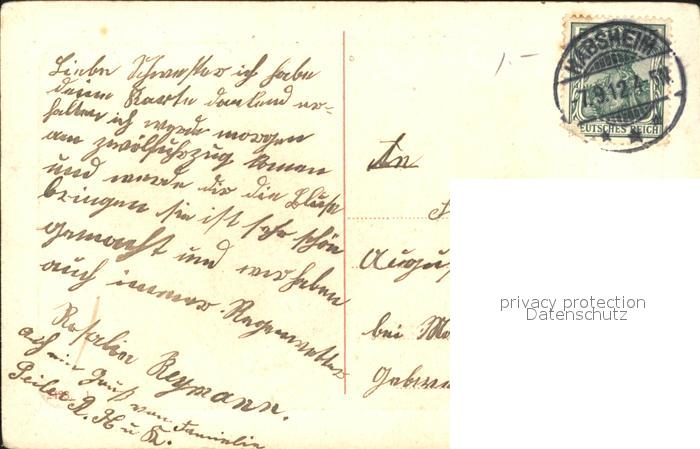 Liebe Schwester ich habe
deine Karte dankend er-
halten ich werde morgen
am zwölfuhrzug komen
und werde dir die Bluse
bringen sie ist sehr schön
gemacht und wir haben
auch immer Regenwetter
Rosalia Reymann.
auch ein Gruß von Familie
Peiler A. H u K.
1.-
HABSHEIM
7.9.12.4-5N
DEUTSCHES REICH
An
Augu
bei Ma
Gebwe
privacy protection
Datenschutz